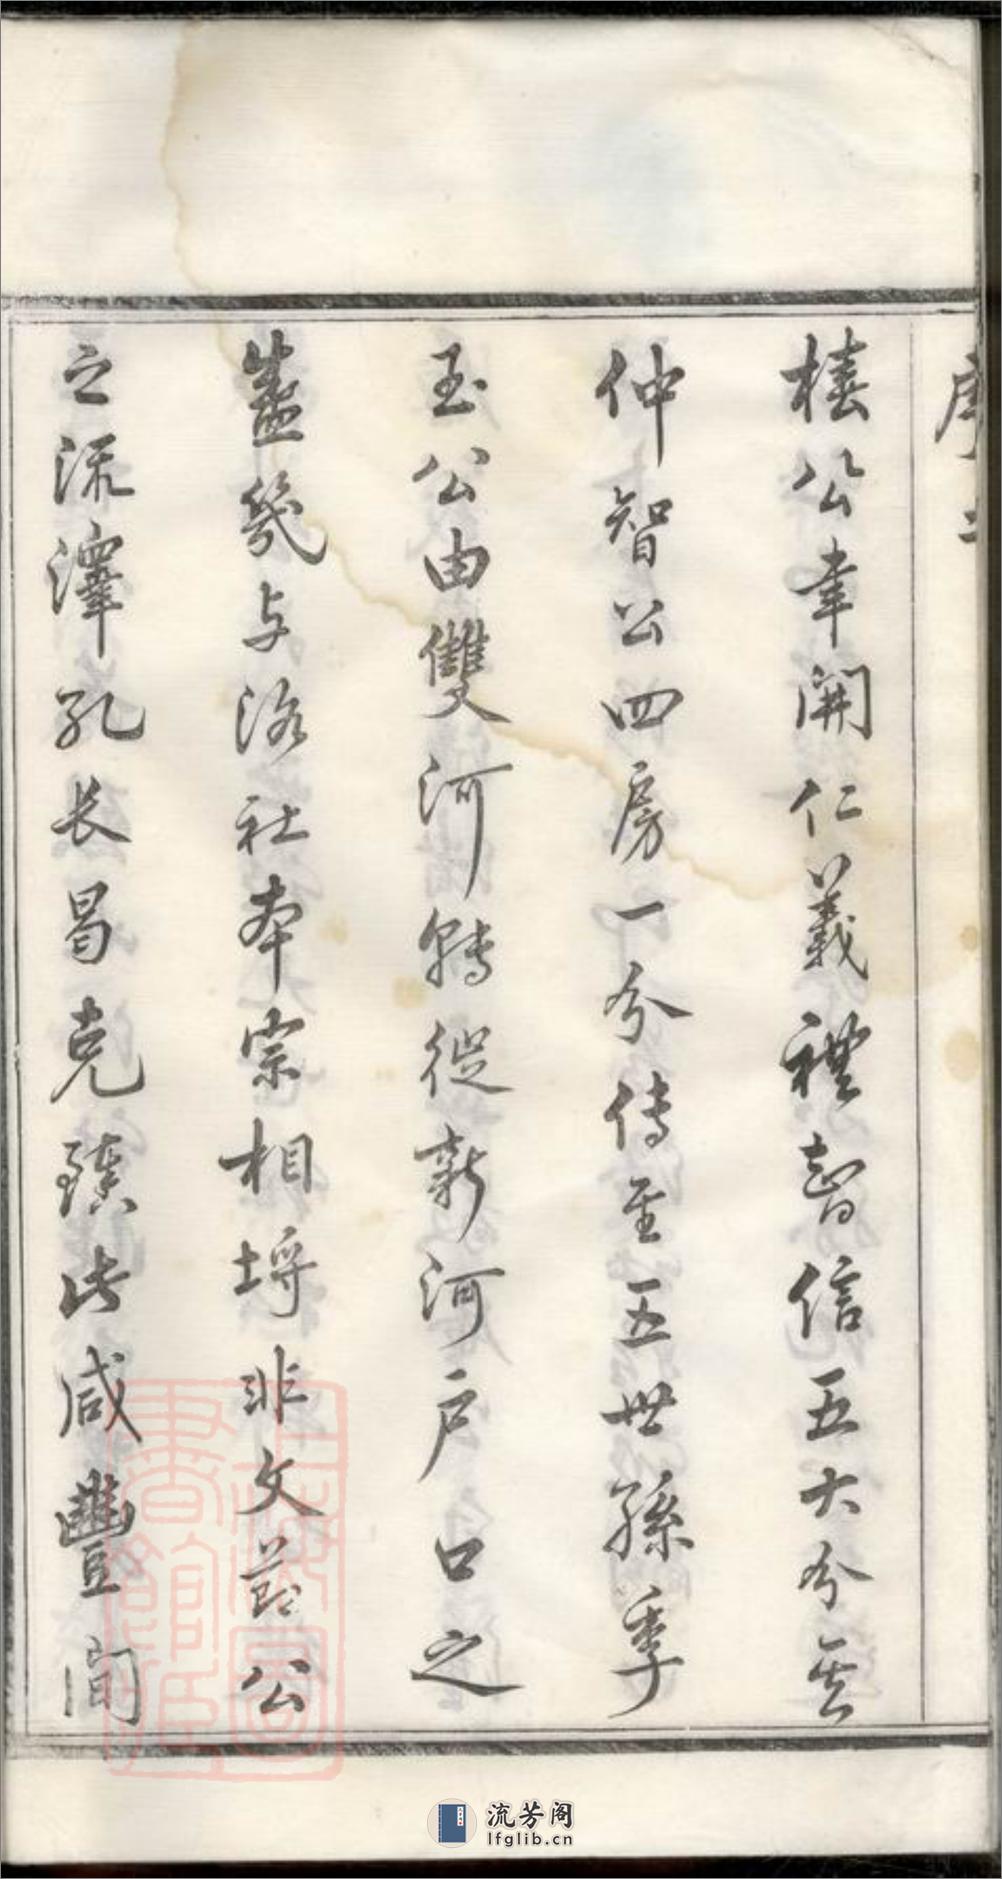 序二
椿公聿開仁義禮智信五大分至
仲智公四房一分傳至五世孫季
玉公由雙河轉從新河戶口之
盛幾与洛社本宗相埒非文莊公
之流澤孔长曷克臻此咸豐間
上海圖書館藏
流芳阁
lfglib.cn